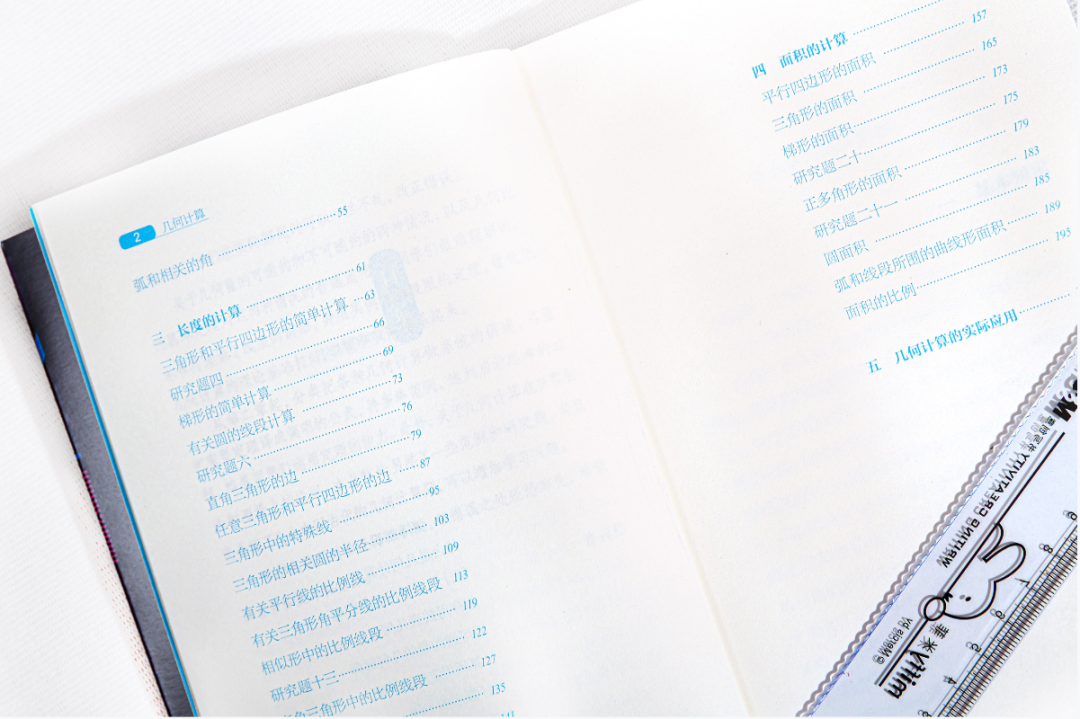 2 几何计算
弧和相关的角 …… 55
三 长度的计算 …… 61
三角形和平行四边形的简单计算 … 63
研究题四 …… 66
梯形的简单计算 …… 69
有关圆的线段计算 …… 73
研究题六 …… 76
直角三角形的边 …… 79
任意三角形和平行四边形的边 …… 87
三角形中的特殊线 …… 95
三角形的相关圆的半径 …… 103
有关平行线的比例线 …… 109
有关三角形角平分线的比例线段 113
相似形中的比例线段 …… 119
研究题十三 …… 122
角三角形中的比例线段 …… 127
135
141
四 面积的计算 ……
平行四边形的面积 …… 157
三角形的面积 …… 165
梯形的面积 …… 173
研究题二十 …… 175
正多角形的面积 …… 179
研究题二十一 …… 183
圆面积 …… 185
弧和线段所围的曲线形面积 …… 189
面积的比例 …… 195
五 几何计算的实际应用 ……
WRITING CREATIVITY
miffy 米菲
© Mercis bv